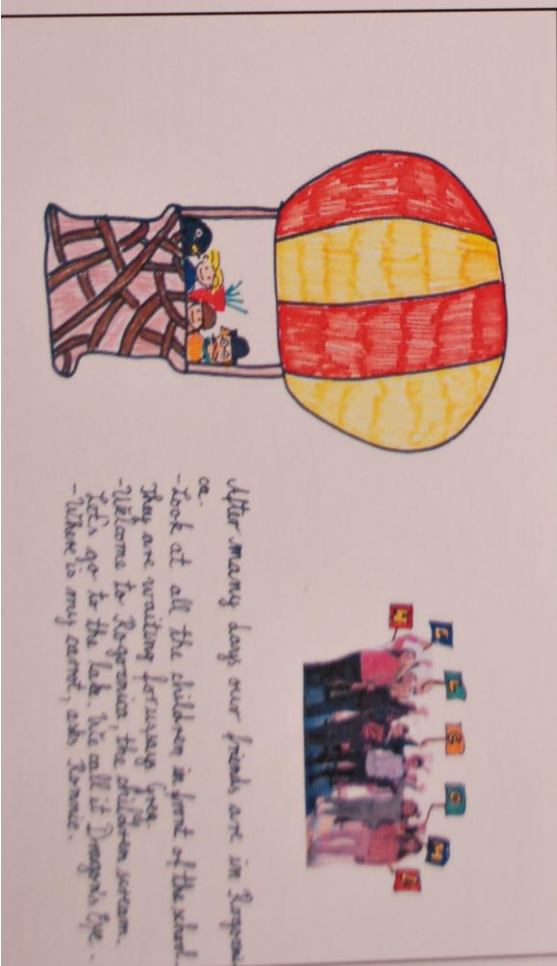 W E L C O M E
After many days our friends are in Rogozni
ca.
- Look at all the children in front of the school.
They are waiting for us, says Grga.
- Welcome to Rogoznica, the children scream.
Let's go to the lake. We call it Dragon's Eye.
- Where is my carrot, asks Ronnie.